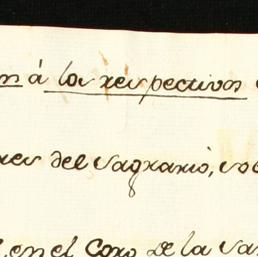 á los respectivos
del Sagrario, so
en el Coro de la